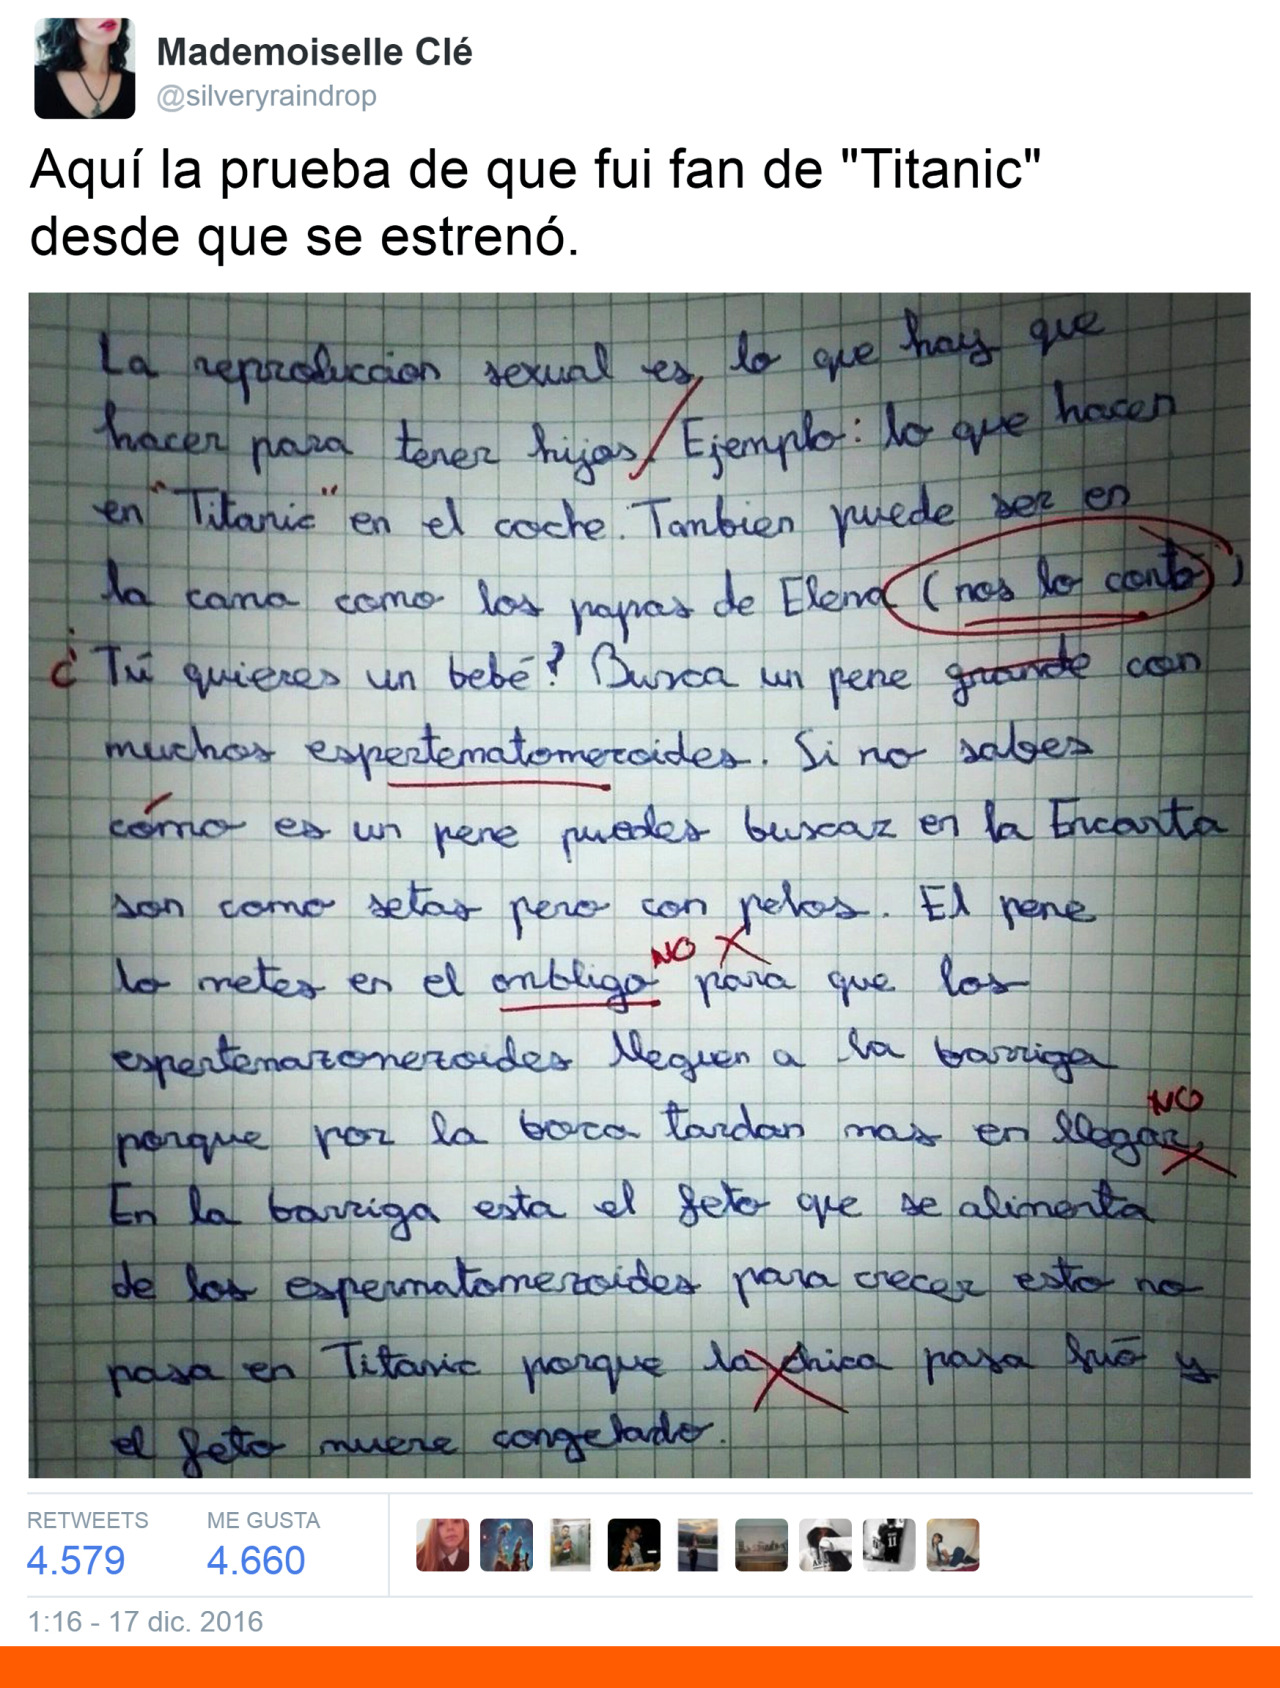 Mademoiselle Clé
@silveryraindrop
Aquí la prueba de que fui fan de "Titanic"
desde que se estrenó.
La reproduccion sexual es, lo que hay que
hacer para tener hijos/ Ejemplo: lo que hacen
en "Titanic" en el coche. Tambien puede ser en
la cama como los papas de Elena (nos lo conto)
¿Tú quieres un bebé? Busca un pene grande con
muchos espertematomeroides. Si no sabes
cómo es un pene puedes buscar en la Encarta
son como setas pero con pelos. El pene
NO
lo metes en el ombligo para que los
espertemazomeroides lleguen a la barriga
NO
porque por la boca tardan mas en llegar,
En la barriga esta el feto que se alimenta
de los espermatomeroides para crecer esto no
pasa en Titanic porque la chica pasa frio y
el feto muere congelado.
RETWEETS ME GUSTA
4.579 4.660
1:16 - 17 dic. 2016